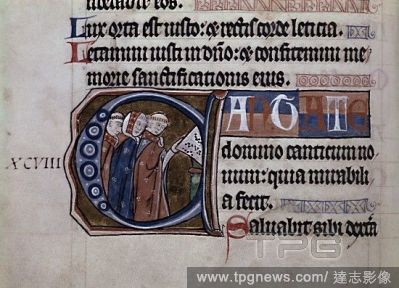 liberabit eos.
Lux orta est iusto: ⁊ rectis corde leticia.
Letamini iusti in dño: ⁊ confitemini me
morie sanctificationis eius.
XCVIII
CANTATE
domino canticum no
uum: quia mirabili
a fecit.
Saluabit sibi dext̃a
TPG
www.tpgnews.com/ 達志影像